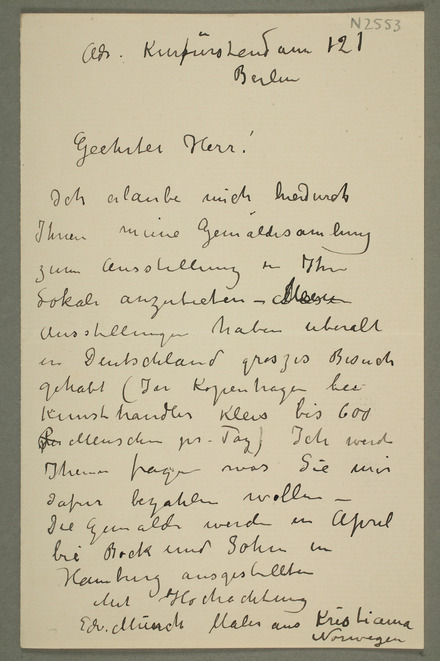 N2553
Adr. Kurfürstendam 121
Berlin
Geehrter Herr!
Ich erlaube mich hiedurch
Ihnen meine Gemäldesamlung
zum Ausstellung in Ihr
Lokale anzubieten – Meine
Ausstellungen haben uberalt
in Deutschland groszes Besuch
gehabt (In Kopenhagen bei
Kunsthandler Kleis bis 600
Menschen pr. Tag) Ich werde
Ihnen fragen was Sie mir
dafur bezahlen wollen –
Die Gemalde werden in April
bei Bock und Sohn in
Hamburg ausgestellten
Mit Hochachtung
Edv. Munch Maler aus Kristiania
Norwegen